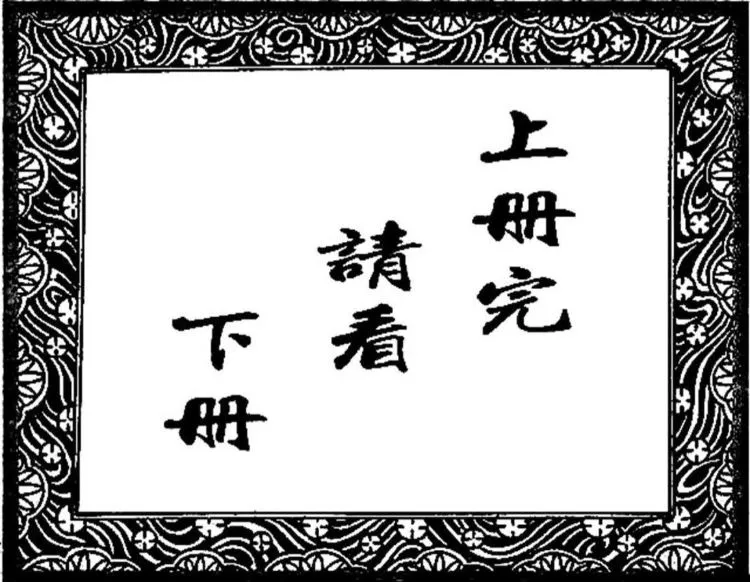 上册完
請看
下册